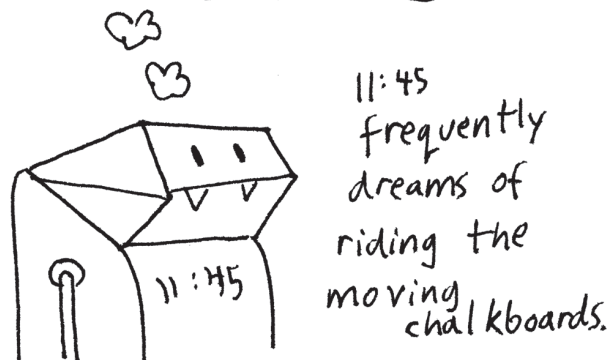 11:45
frequently
dreams of
riding the
moving
chalkboards.
11:45